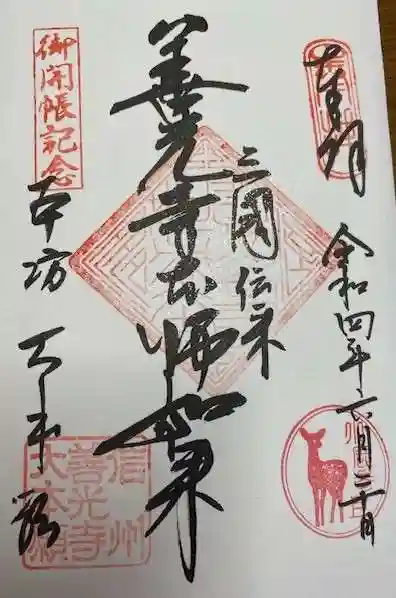 奉拝
令和四年六月三十日
三國伝来
善光寺本師如来
御開帳記念
本坊
大本願
信州
善光寺
大本願